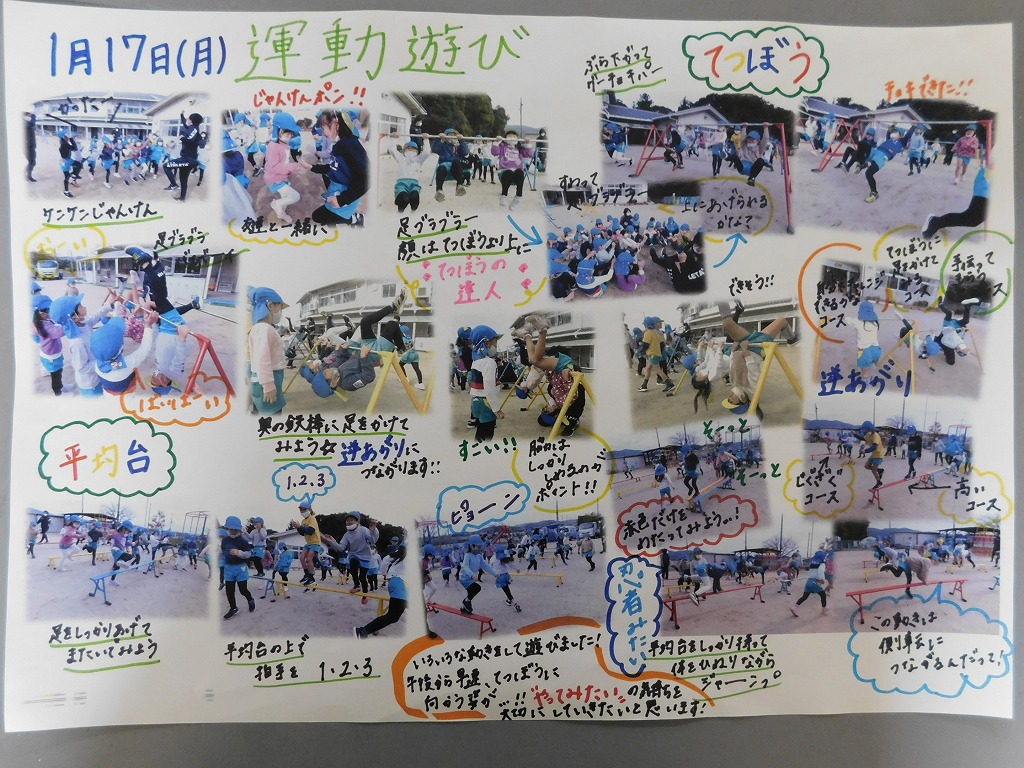 1月17日(月) 運動遊び
ぶら下がって
グーチョキパー
てつぼう
チョキできた!!
じゃんけんポン!!
ケンケンじゃんけん
一緒に
足ブラブラ〜
顔はてつぼうより上に
てつぼうの
達人
すわって
ブラブラ〜
上にあげられる
かな?
足ブラブラ
ばりばーい
奥の鉄棒に足をかけて
みよう☆逆あがりに
つながります!!
すごい!!
脇は
しっかり
しめるのが
ポイント!!
できそう!!
コース
てつぼうに
足をかけて
コース
手伝って
コース
逆あがり
平均台
1.2.3
ピョーン
そーっと
そーっと
赤色だけを
わたってみよう!!
じぐざぐ
コース
高い
コース
足をしっかりあげて
またいでみよう
平均台の上で
拍手を 1・2・3
いろいろな動きをして遊びました!
午後から早速、てつぼうに
向かう姿が!!"やってみたい"の気持ちを
大切にしていきたいと思います!
忍者みたい
平均台をしっかり持って
体をひねりながら
ジャーンプ
この動きは
側転に
つながるんだって!